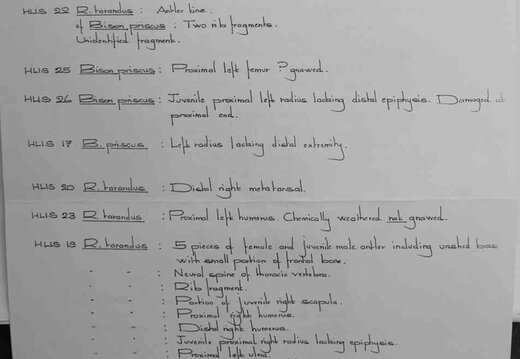 HLIS 22 R. tarandus : Antler tine.
cf Bison priscus : Two rib fragments.
Unidentified fragment.
HLIS 25 Bison priscus : Proximal left femur ? gnawed.
HLIS 26 Bison priscus : Juvenile proximal left radius lacking distal epiphysis. Damaged at
proximal end.
HLIS 17 B. priscus : Left radius lacking distal extremity.
HLIS 20 R. tarandus : Distal right metatarsal.
HLIS 23 R. tarandus : Proximal left humerus. Chemically weathered not gnawed.
HLIS 19 R. tarandus : 5 pieces of female and juvenile male antler including unshed base
with small portion of frontal bone.
" " : Neural spine of thoracic vertebra.
" " : Rib fragment.
" " : Portion of juvenile right scapula.
" " : Proximal right humerus.
" " : Distal right humerus.
" " : Juvenile proximal right radius lacking epiphysis.
" " : Proximal left ulna.